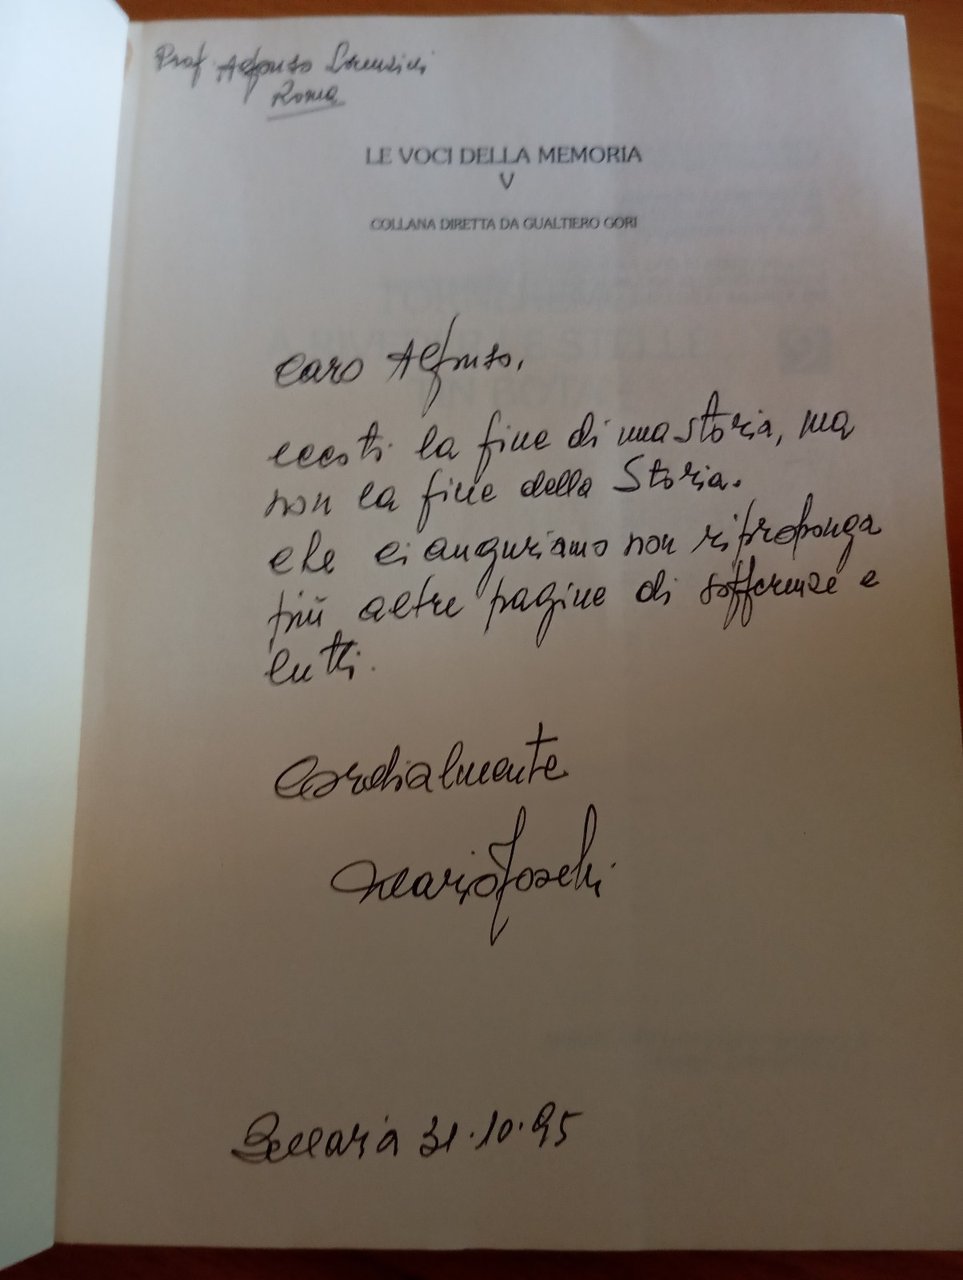 Prof. Alfonso Lorenzini
Roma
LE VOCI DELLA MEMORIA
V
COLLANA DIRETTA DA GUALTIERO GORI
Caro Alfonso,
eccoti la fine di una storia, ma
non la fine della Storia.
che ci auguriamo non riproponga
più altre pagine di sofferenze e
lutti.
Cordialmente
Mario Foschi
Bellaria 31.10.95